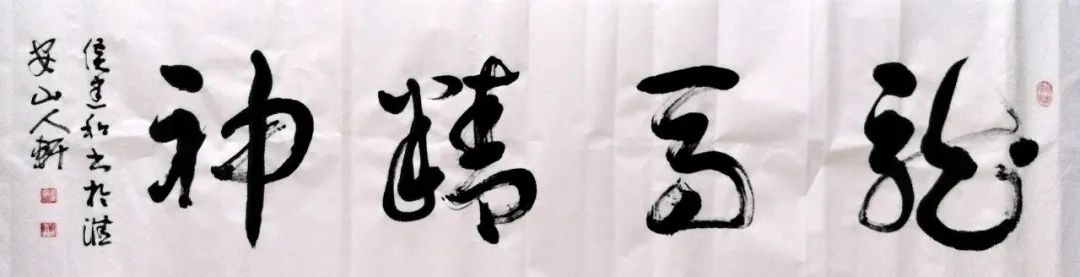 龍馬精神
侯建和書於淮
安山人軒